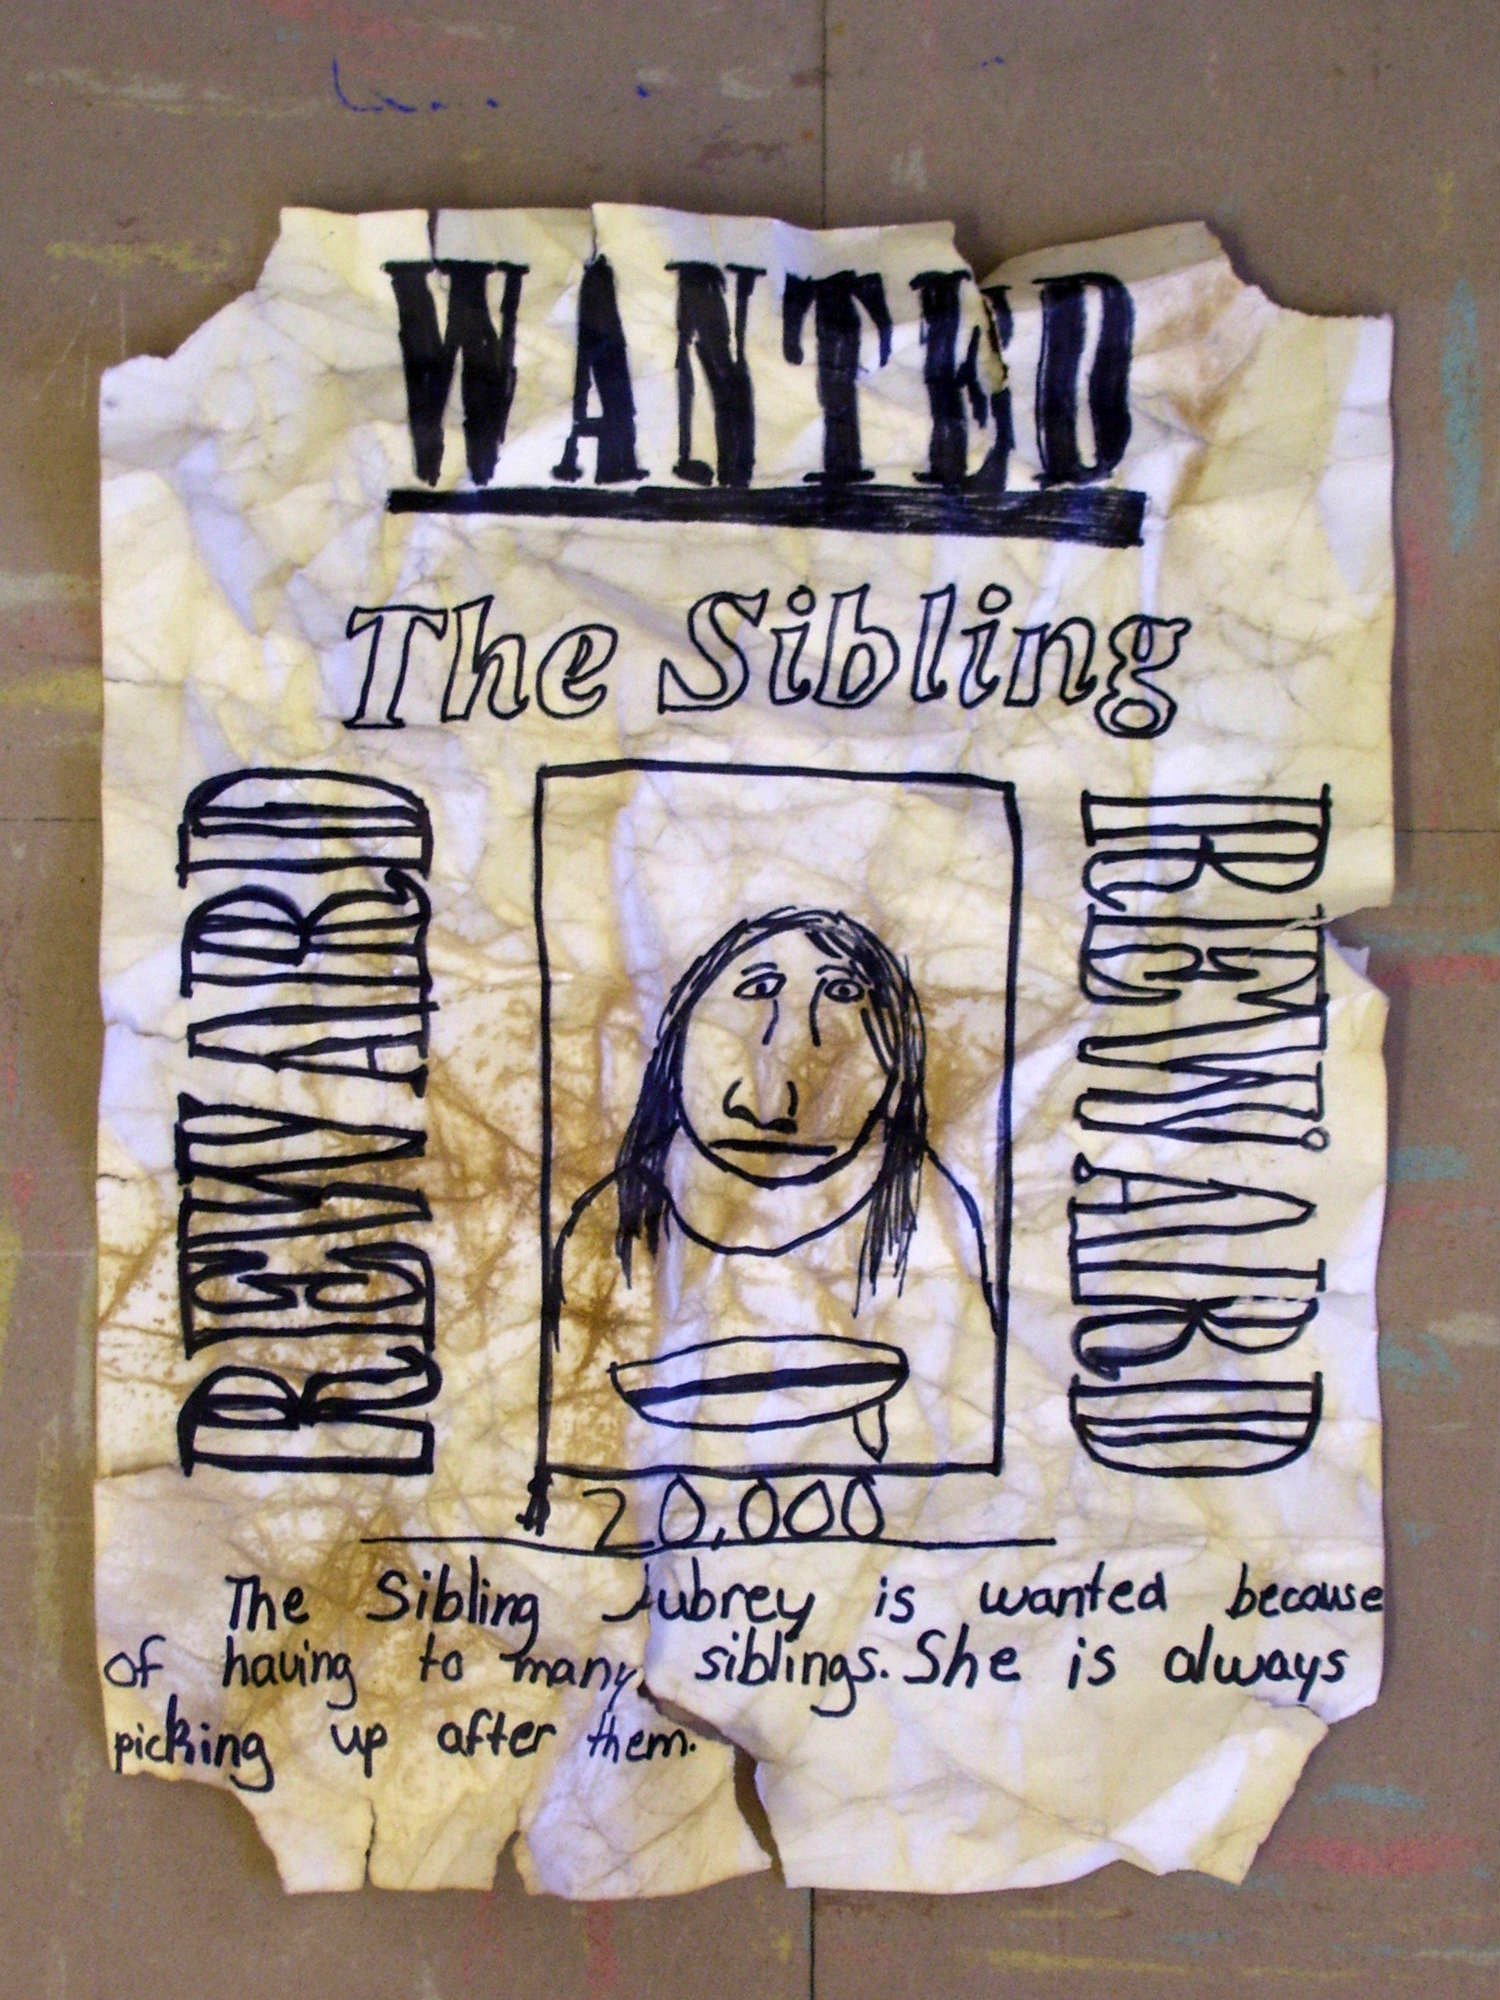 WANTED
The Sibling
REWARD
REWARD
$ 20,000
The Sibling Aubrey is wanted because
of having to many siblings. She is always
picking up after them.